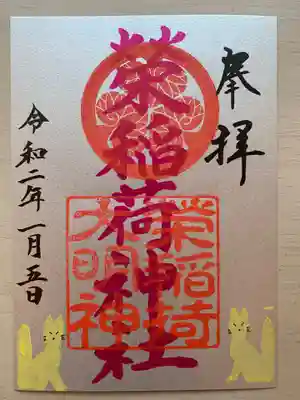 奉拝
榮稲荷神社
榮稲
大明神
令和二年一月五日